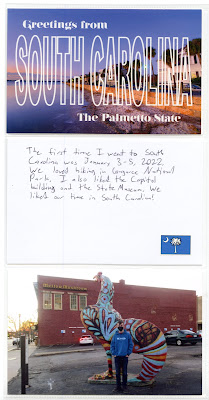 Greetings from
SOUTH CAROLINA
The Palmetto State
The first time I went to South
Carolina was January 3-5, 2022.
We loved hiking in Congaree National
Park. I also liked the Capitol
building and the State Museum. We
liked our time in South Carolina!